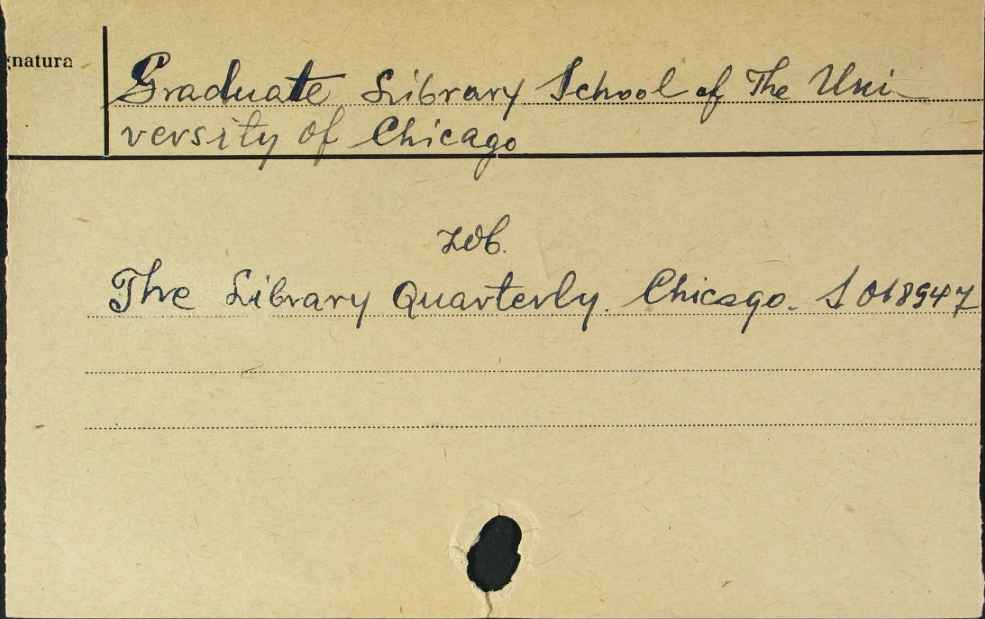 gnatura
Graduate Library School of The Uni-
versity of Chicago
zob.
The Library Quarterly. Chicago.